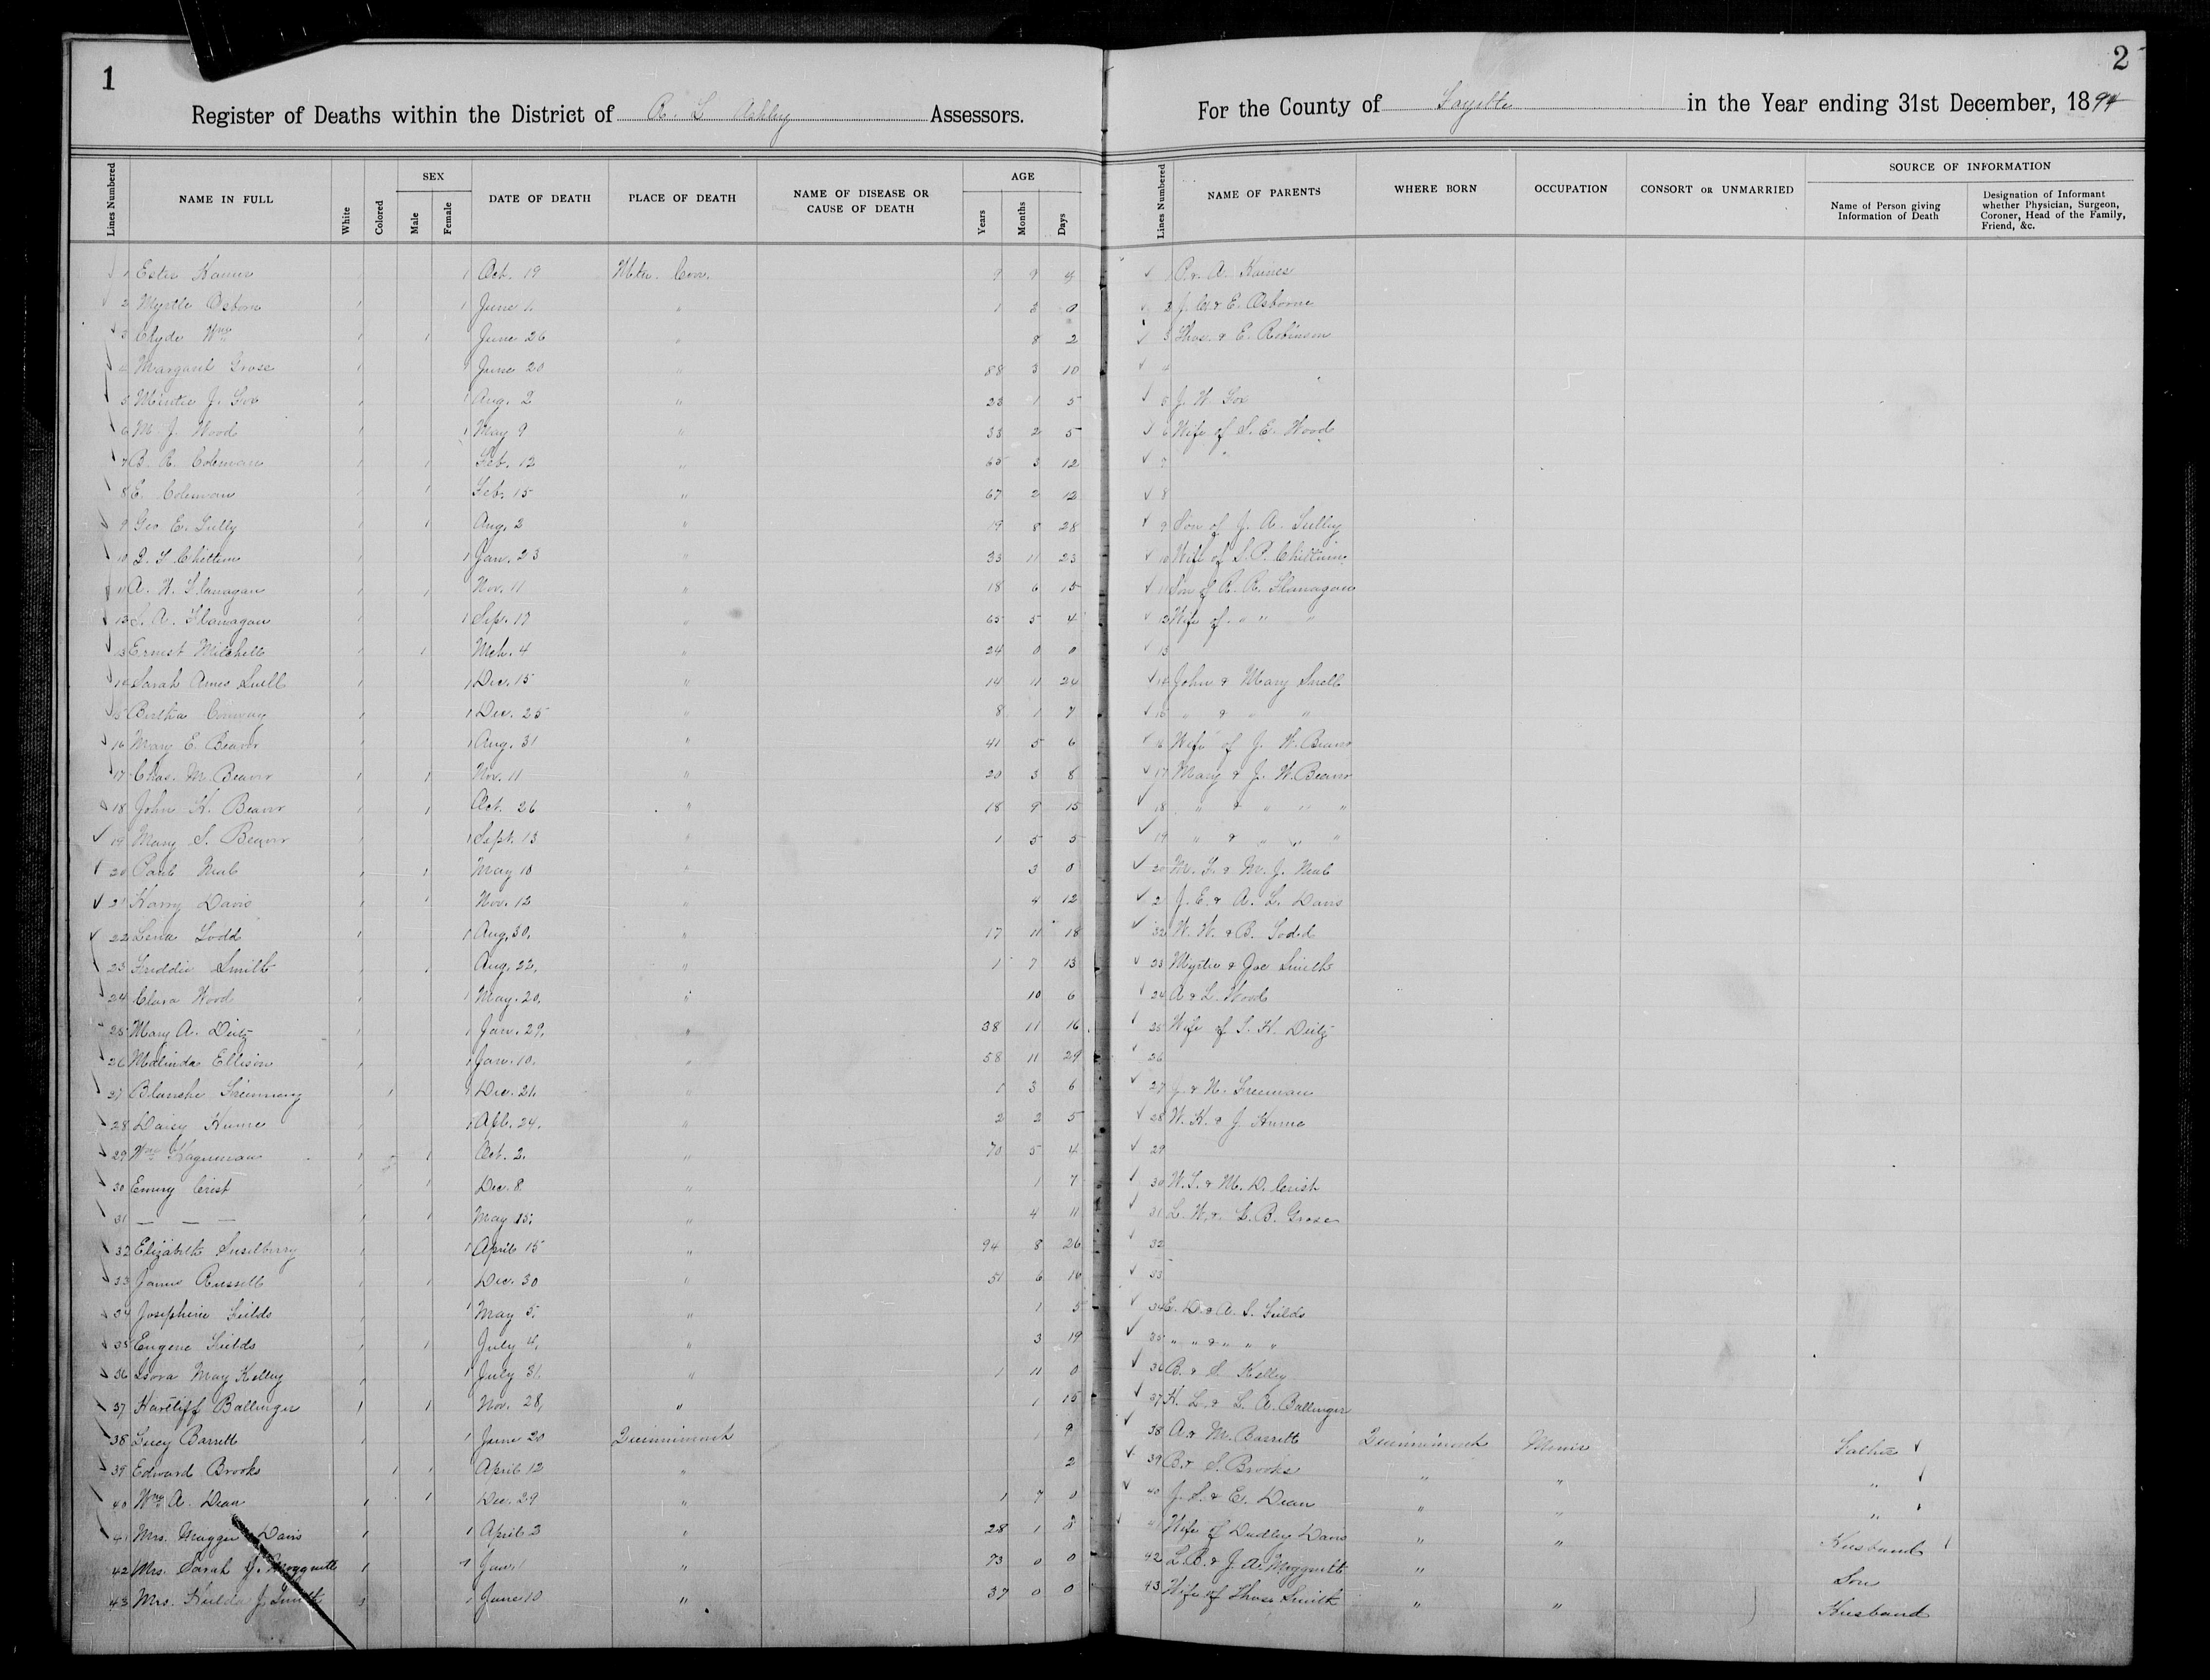 1
Register of Deaths within the District of R. L. Ashley Assessors.
Lines Numbered
NAME IN FULL
White
Colored
SEX
Male
Female
DATE OF DEATH
PLACE OF DEATH
NAME OF DISEASE OR CAUSE OF DEATH
AGE
Years
Months
Days
1 Oct. 19 9 4
2 Myrtle Osborn 1 1 June 1 " 1 3 0
3 Clyde Wm 1 1 June 26 " 8 2
4 Margaret Grose 1 1 June 20 " 88 3 10
5 J. Fox 1 1 Aug. 2 " 23 1 5
6 M. J. Wood 1 1 May 9 " 33 2 5
7 B. R. Coleman 1 1 Feb. 12 " 65 3 12
8 E. Coleman 1 1 Feb. 15 " 67 2 12
9 Geo E. Tully 1 1 Aug. 2 " 19 8 28
10 Chittum 1 1 Jan. 23 " 33 11 23
11 A. W. Flanagan 1 1 Nov. 11 " 18 6 15
12 S. A. Flanagan 1 1 Sep. 17 " 65 5 4
13 Ernest Mitchell 1 1 Mch. 4 " 24 0 0
14 Sarah Ames Snell 1 1 Dec. 15 " 14 11 24
15 Bertha Conway 1 1 Dec. 25 " 8 1 7
16 Mary E. Beaver 1 1 Aug. 31 " 41 5 6
17 Chas. M. Beaver 1 1 Nov. 11 " 20 3 8
18 John H. Beaver 1 1 Oct. 26 " 18 9 15
19 Mary S. Beaver 1 1 Sept. 13 " 1 5 5
20 Paul 1 1 May 10 " 3 0
21 Harry Davis 1 1 Nov. 12 " 4 12
22 Lena Todd 1 1 Aug. 30. " 17 11 18
23 Freddie Smith 1 1 Aug. 22. " 1 7 13
24 Clara Wood 1 1 May. 20. " 10 6
25 Mary A. Deitz 1 1 Jan. 29. " 38 11 16
26 Malinda Ellison 1 1 Jan. 10. " 58 11 29
27 Blanche 1 1 Dec. 21. " 1 3 6
28 Daisy Hume 1 1 Apl. 24. " 2 2 5
29 Wm 1 1 Oct. 2. " 70 5 4
30 Emery Crist 1 1 Dec. 8 " 1 7
31 — — — 1 1 May 15. " 4 11
32 Elizabeth 1 1 April 15 " 94 8 26
33 James Russell 1 1 Dec. 30 " 51 6 16
34 Josephine Fields 1 1 May 5. " 1 5
35 Eugene Fields 1 1 July 4. " 3 19
36 May Kelley 1 1 July 31 " 1 11 0
37 Hartliff Ballinger 1 1 Nov. 28, " 1 15
38 Lucy Barrett 1 1 June 20 Quinnimont 9
39 Edward Brooks 1 1 April 12 " 2
40 Wm A. Dean 1 1 Dec. 29 " 1 7 0
41 Mrs. Maggie Davis 1 1 April 3 " 28 1 8
42 Mrs. Sarah J. 1 1 Jan. 1 " 73 0 0
43 Mrs. Hulda J. Smith 1 June 10 " 37 0 0
2
For the County of Fayette in the Year ending 31st December, 1894
Lines Numbered
NAME OF PARENTS
WHERE BORN
OCCUPATION
CONSORT OR UNMARRIED
SOURCE OF INFORMATION
Name of Person giving Information of Death
Designation of Informant whether Physician, Surgeon, Coroner, Head of the Family, Friend, &c.
1
2 & E. Osborne
3 Thos. & E. Robinson
4
5 J. W. Fox
6 Wife of S. E. Wood
7
8
9 Son of J. A. Tully
10 Wife of S. P. Chittum
11 Son of R. R. Flanagan
12 Wife of " " "
13
14 John & Mary Snell
15 " & " "
16 Wife of J. W. Beaver
17 Mary & J. W. Beaver
18 " & " " "
19 " & " " "
20 & M. J.
21 J. E. & A. L. Davis
22 W. W. & B. Todd
23 Myrtie & Joe Smith
24 A & L. Wood
25 Wife of S. H. Deitz
26
27 J. & N. Freeman
28 W. H. & J. Hume
29
30 W. S. & M. D. Crist
31 L. W. & L. B. Grose
32
33
34 E. D. & A. S. Fields
35 " " & " " "
36 B. & S. Kelley
37 H. L. & L. A. Ballinger
38 A. & M. Barrett Quinnimont Miner Father
39 B. & S. Brooks " " "
40 J. S. & E. Dean " " "
41 Wife of Dudley Davis " " Husband
42 L. B. & J. A. " Son
43 Wife of Thos Smith " " Husband